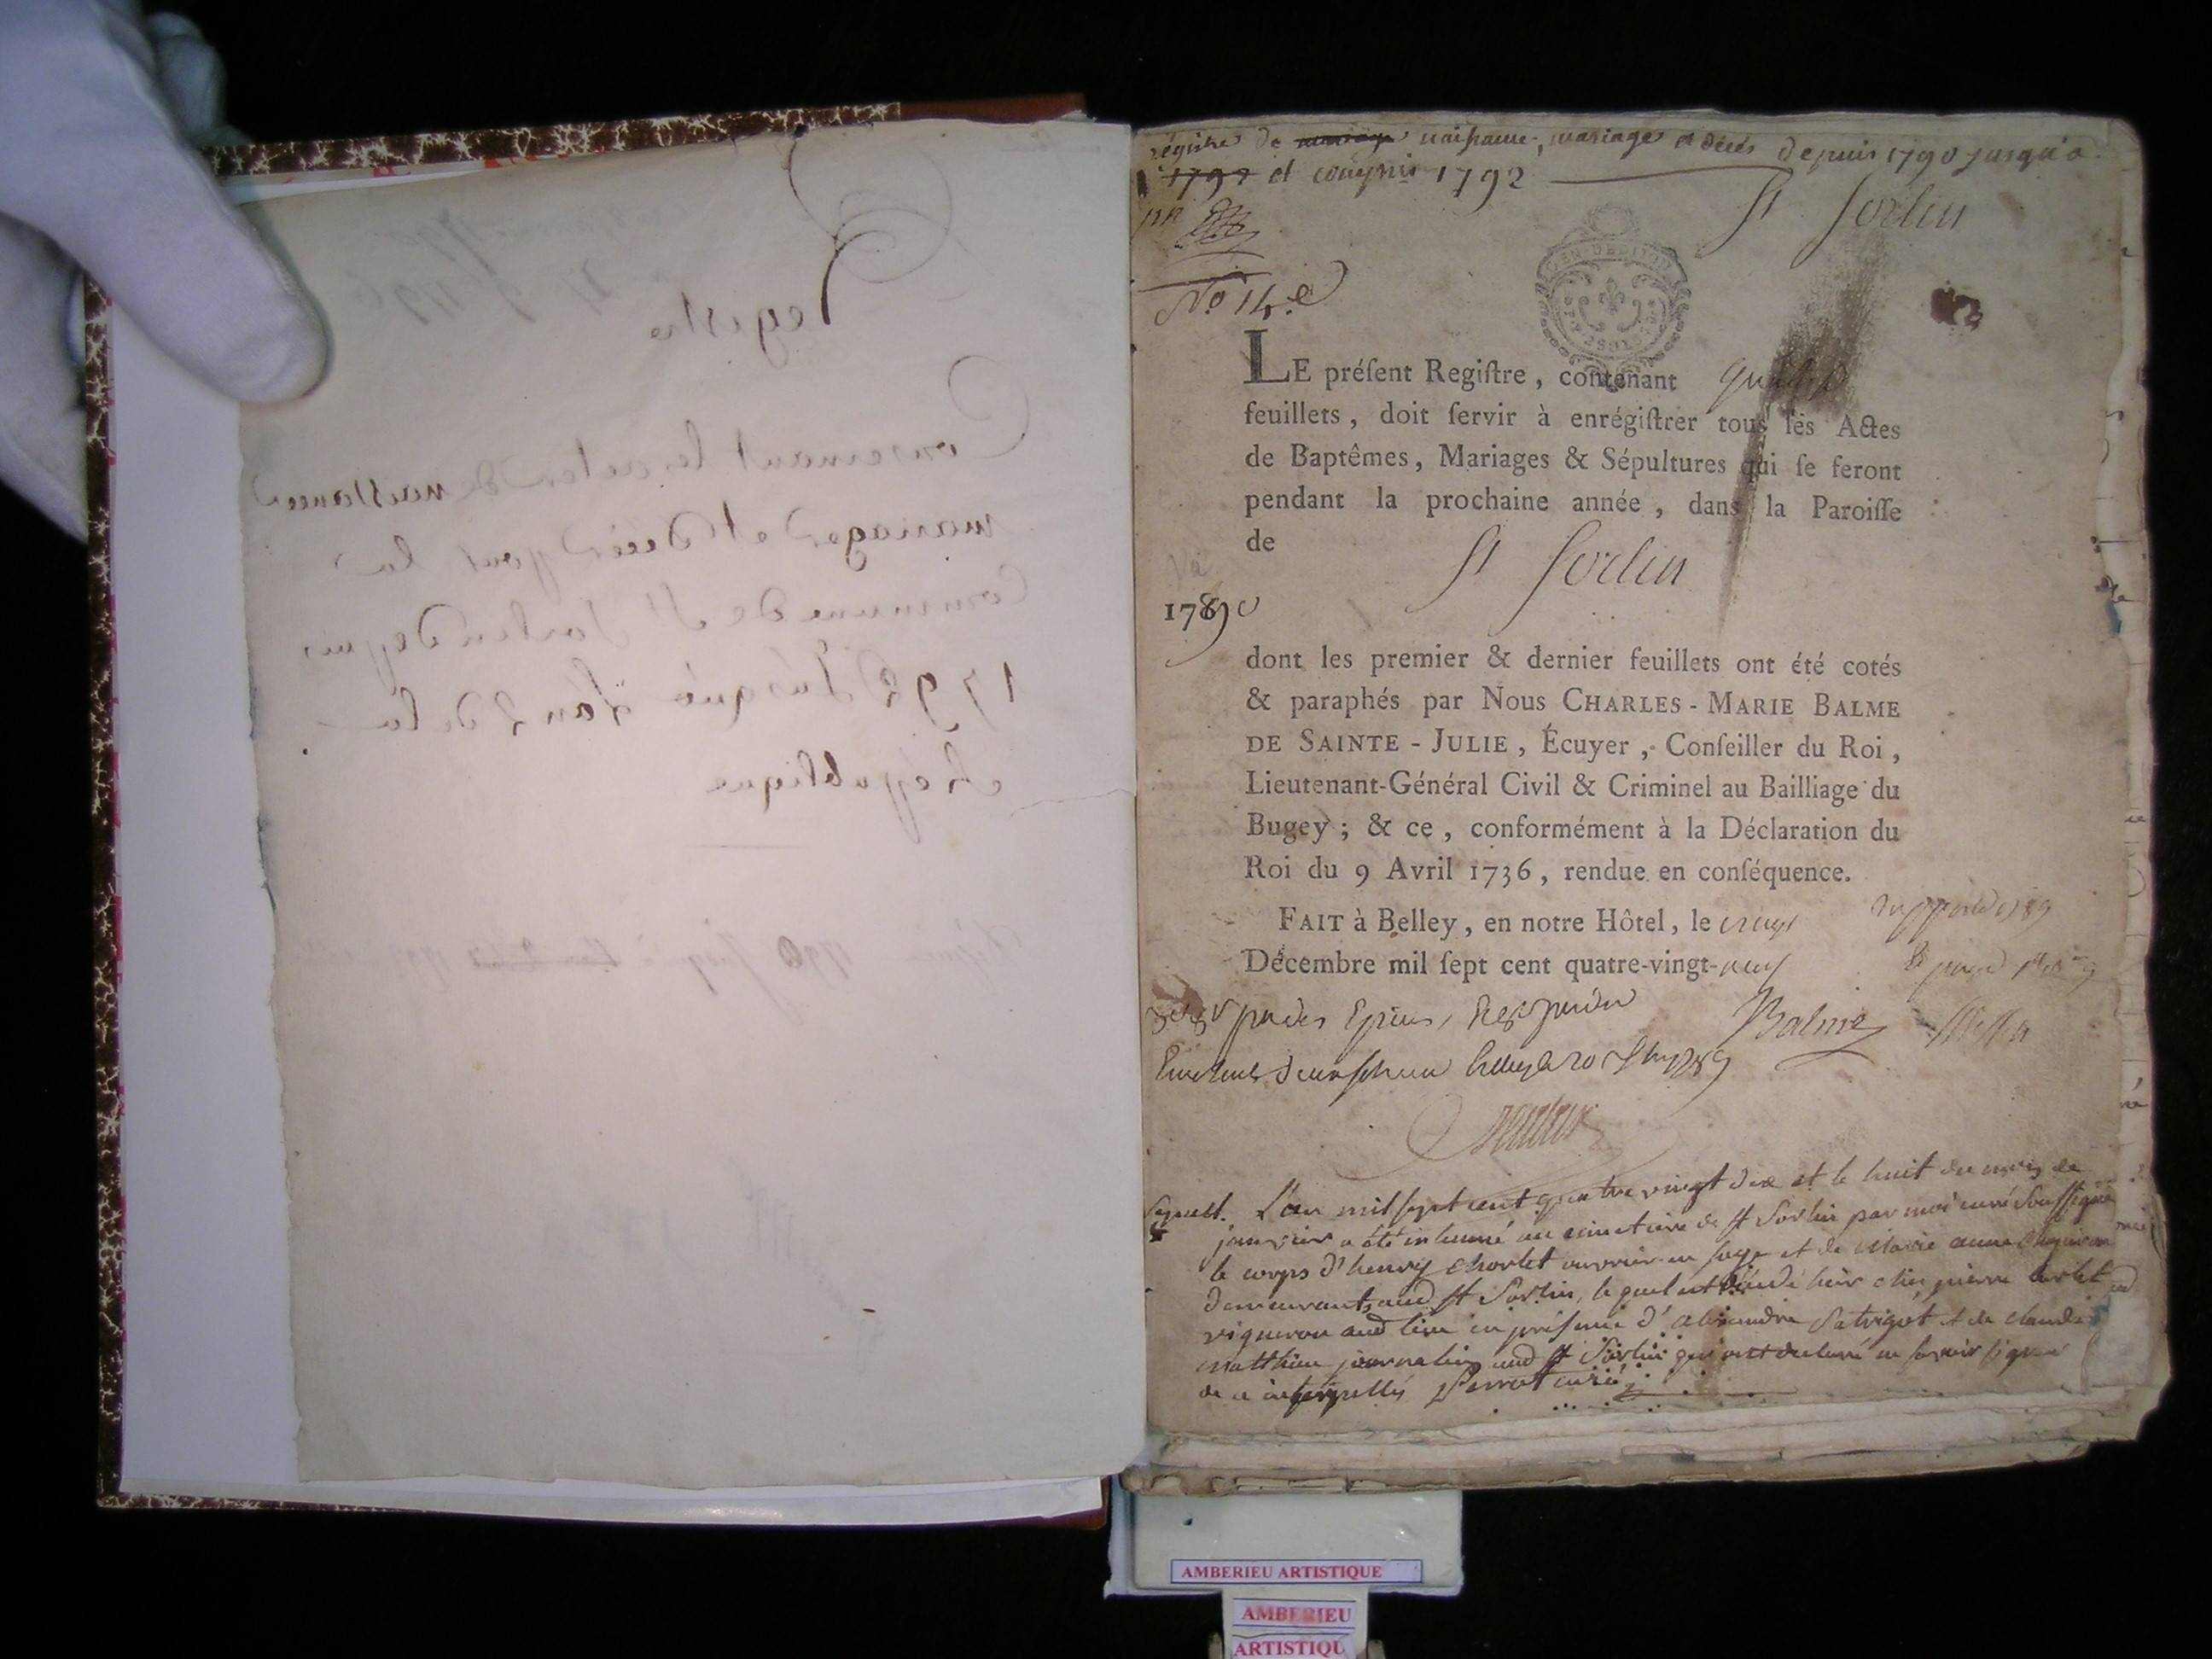 Registre
Concernant les actes de naissances
mariages et décès pour la
Commune de St Sorlin depuis
1792 Jusqu'à l'an 2 de la
République
régistre de mariage naissance, mariage et décès depuis 1790 jusqu'a
1792 et compris 1792
St Sorlin
No 14.e
LE préſent Regiſtre, contenant
feuillets, doit ſervir à enrégiſtrer tous les Actes
de Baptêmes, Mariages & Sépultures qui ſe feront
pendant la prochaine année, dans la Paroiſſe
de St Sorlin
1789
dont les premier & dernier feuillets ont été cotés
& paraphés par Nous CHARLES-MARIE BALME
DE SAINTE-JULIE, Écuyer, Conſeiller du Roi,
Lieutenant-Général Civil & Criminel au Bailliage du
Bugey; & ce, conformément à la Déclaration du
Roi du 9 Avril 1736, rendue en conſéquence.
FAIT à Belley, en notre Hôtel, le vingt
Décembre mil ſept cent quatre-vingt-neuf
Balme
L'an mil sept cent quatre vingt dix et le huit du mois de
janvier a été inhumé au cimetiere de st Sorlin par moi curé soussigné
le corps d'henry Chorlet ouvrier en soye et de Marie anne
demeurants aud st Sorlin, le quel est décédé hier chez pierre
vigneron aud lieu en présence d'alexandre et de claude
matthieu journalier aud st Sorlin qui ont declaré ne savoir signer
de ce interpellés Perrot curé
AMBERIEU ARTISTIQUE
AMBERIEU
ARTISTIQU